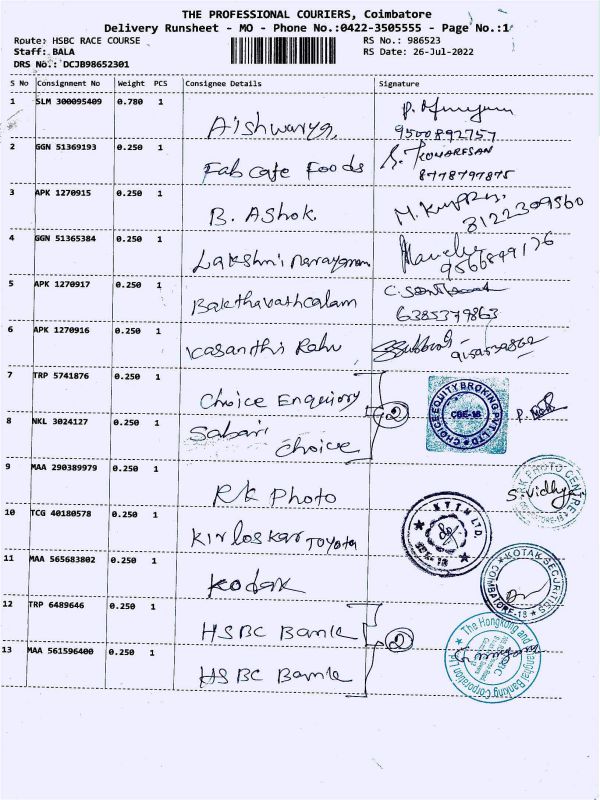 THE PROFESSIONAL COURIERS, Coimbatore
Delivery Runsheet - MO - Phone No.:0422-3505555 - Page No.:1
Route: HSBC RACE COURSE RS No.: 986523
Staff: BALA RS Date: 26-Jul-2022
DRS No.: DCJB98652301
S No Consignment No Weight PCS Consignee Details Signature
1 SLM 300095409 0.780 1 Aishwarya
9500892757
2 GGN 51369193 0.250 1 Fab cafe Foods
8778797875
3 APK 1270915 0.250 1 B. Ashok
8122309860
4 GGN 51365384 0.250 1 Lakshmi narayanan
9566899176
5 APK 1270917 0.250 1 Bakthavathcalam
6385379863
6 APK 1270916 0.250 1 Vasanthi
7 TRP 5741876 0.250 1 Choice Enquiory
2
CHOICE EQUITY BROKING PVT. LTD
CBE-18
8 NKL 3024127 0.250 1 Sabari Choice
9 MAA 290389979 0.250 1 RK Photo
S. Vidhya
PHOTO CENTRE
10 TCG 40180578 0.250 1 Kirloskar TOYOTA
LTD.
11 MAA 565683802 0.250 1 Kodak
KOTAK SECURITIES
COIMBATORE-18
12 TRP 6489646 0.250 1 HSBC Bank
2
13 MAA 561596400 0.250 1 HSBC Bank
The Hongkong and Shanghai Banking Corporation Ltd